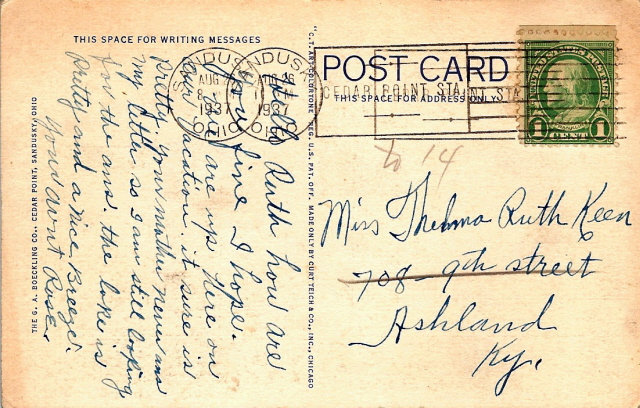 THIS SPACE FOR WRITING MESSAGES
Hello Ruth how are
you fine I hope.
are up here on
our vacation it sure is
pretty, your mother never ans
my letter so I am still looking
for the ans. the lake is
pretty and a nice Breeze.
Your Aunt Rose
THE G. A. BOECKLING CO., CEDAR POINT, SANDUSKY, OHIO
"C.T. ART-COLORTONE" REG. U.S. PAT. OFF. MADE ONLY BY CURT TEICH & CO., INC., CHICAGO
SANDUSKY
AUG
1937
OHIO
SANDUSKY
AUG 16
1937
OHIO
POST CARD
THIS SPACE FOR ADDRESS ONLY
CEDAR POINT STA.
POINT STA.
UNITED STATES POSTAGE
1 CENT 1
to 14
Miss Thelma Ruth Keen
708-9th street
Ashland
Ky.